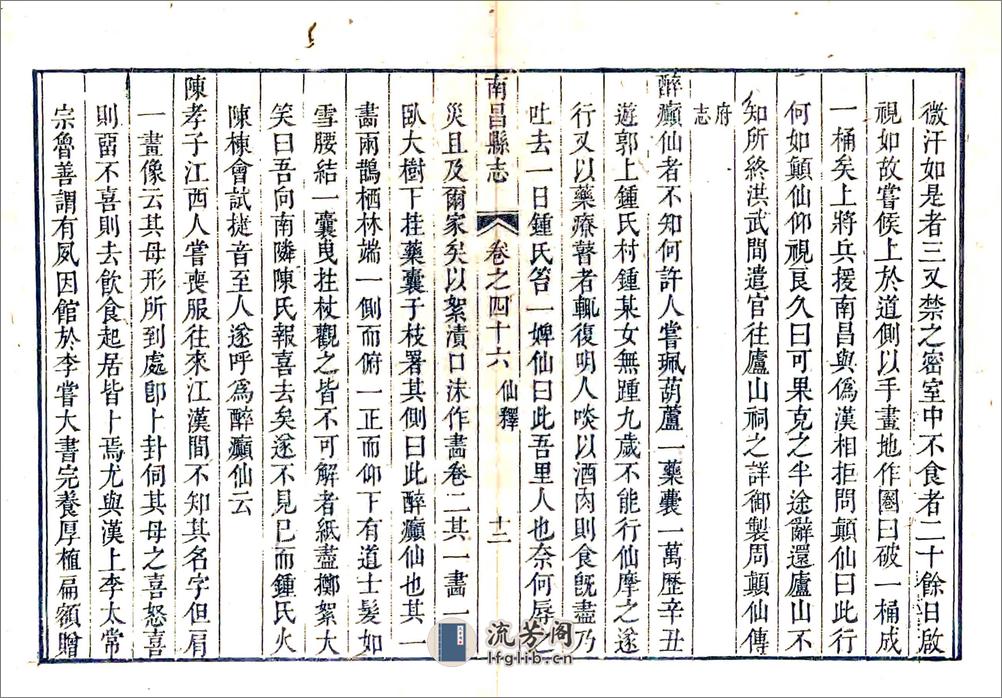 微汗如是者三又禁之密室中不食者二十餘日啟
視如故嘗候上於道側以手畫地作圈曰破一桶成
一桶矣上將兵援南昌與僞漢相拒問顛仙曰此行
何如顛仙仰視良久曰可果克之半途辭還廬山不
知所終洪武間遣官往廬山祠之詳御製周顛仙傳
府志
醉癲仙者不知何許人嘗珮葫蘆一藥囊一萬歷辛丑
遊郭上鍾氏村鍾某女無踵九歲不能行仙摩之遂
行又以藥療瞽者輒復明人啖以酒肉則食旣盡乃
吐去一日鍾氏笞一婢仙曰此吾里人也奈何辱之
南昌縣志 卷之四十六 仙釋 十二
災且及爾家矣以絮漬口沫作畵卷二其一畵一
臥大樹下挂藥囊子枝署其側曰此醉癲仙也其一
畵兩鵲栖林端一側而俯一正而仰下有道士髮如
雪腰結一囊曳拄杖觀之皆不可解者紙盡擲絮大
笑曰吾向南隣陳氏報喜去矣遂不見已而鍾氏火
陳棟會試捷音至人遂呼爲醉癲仙云
陳孝子江西人嘗喪服往來江漢間不知其名字但肩
一畫像云其母形所到處卽卜卦伺其母之喜怒喜
則畱不喜則去飲食起居皆卜焉尤與漢上李太常
宗魯善謂有夙因館於李嘗大書完養厚植扁額贈
流芳阁
lfglib.cn